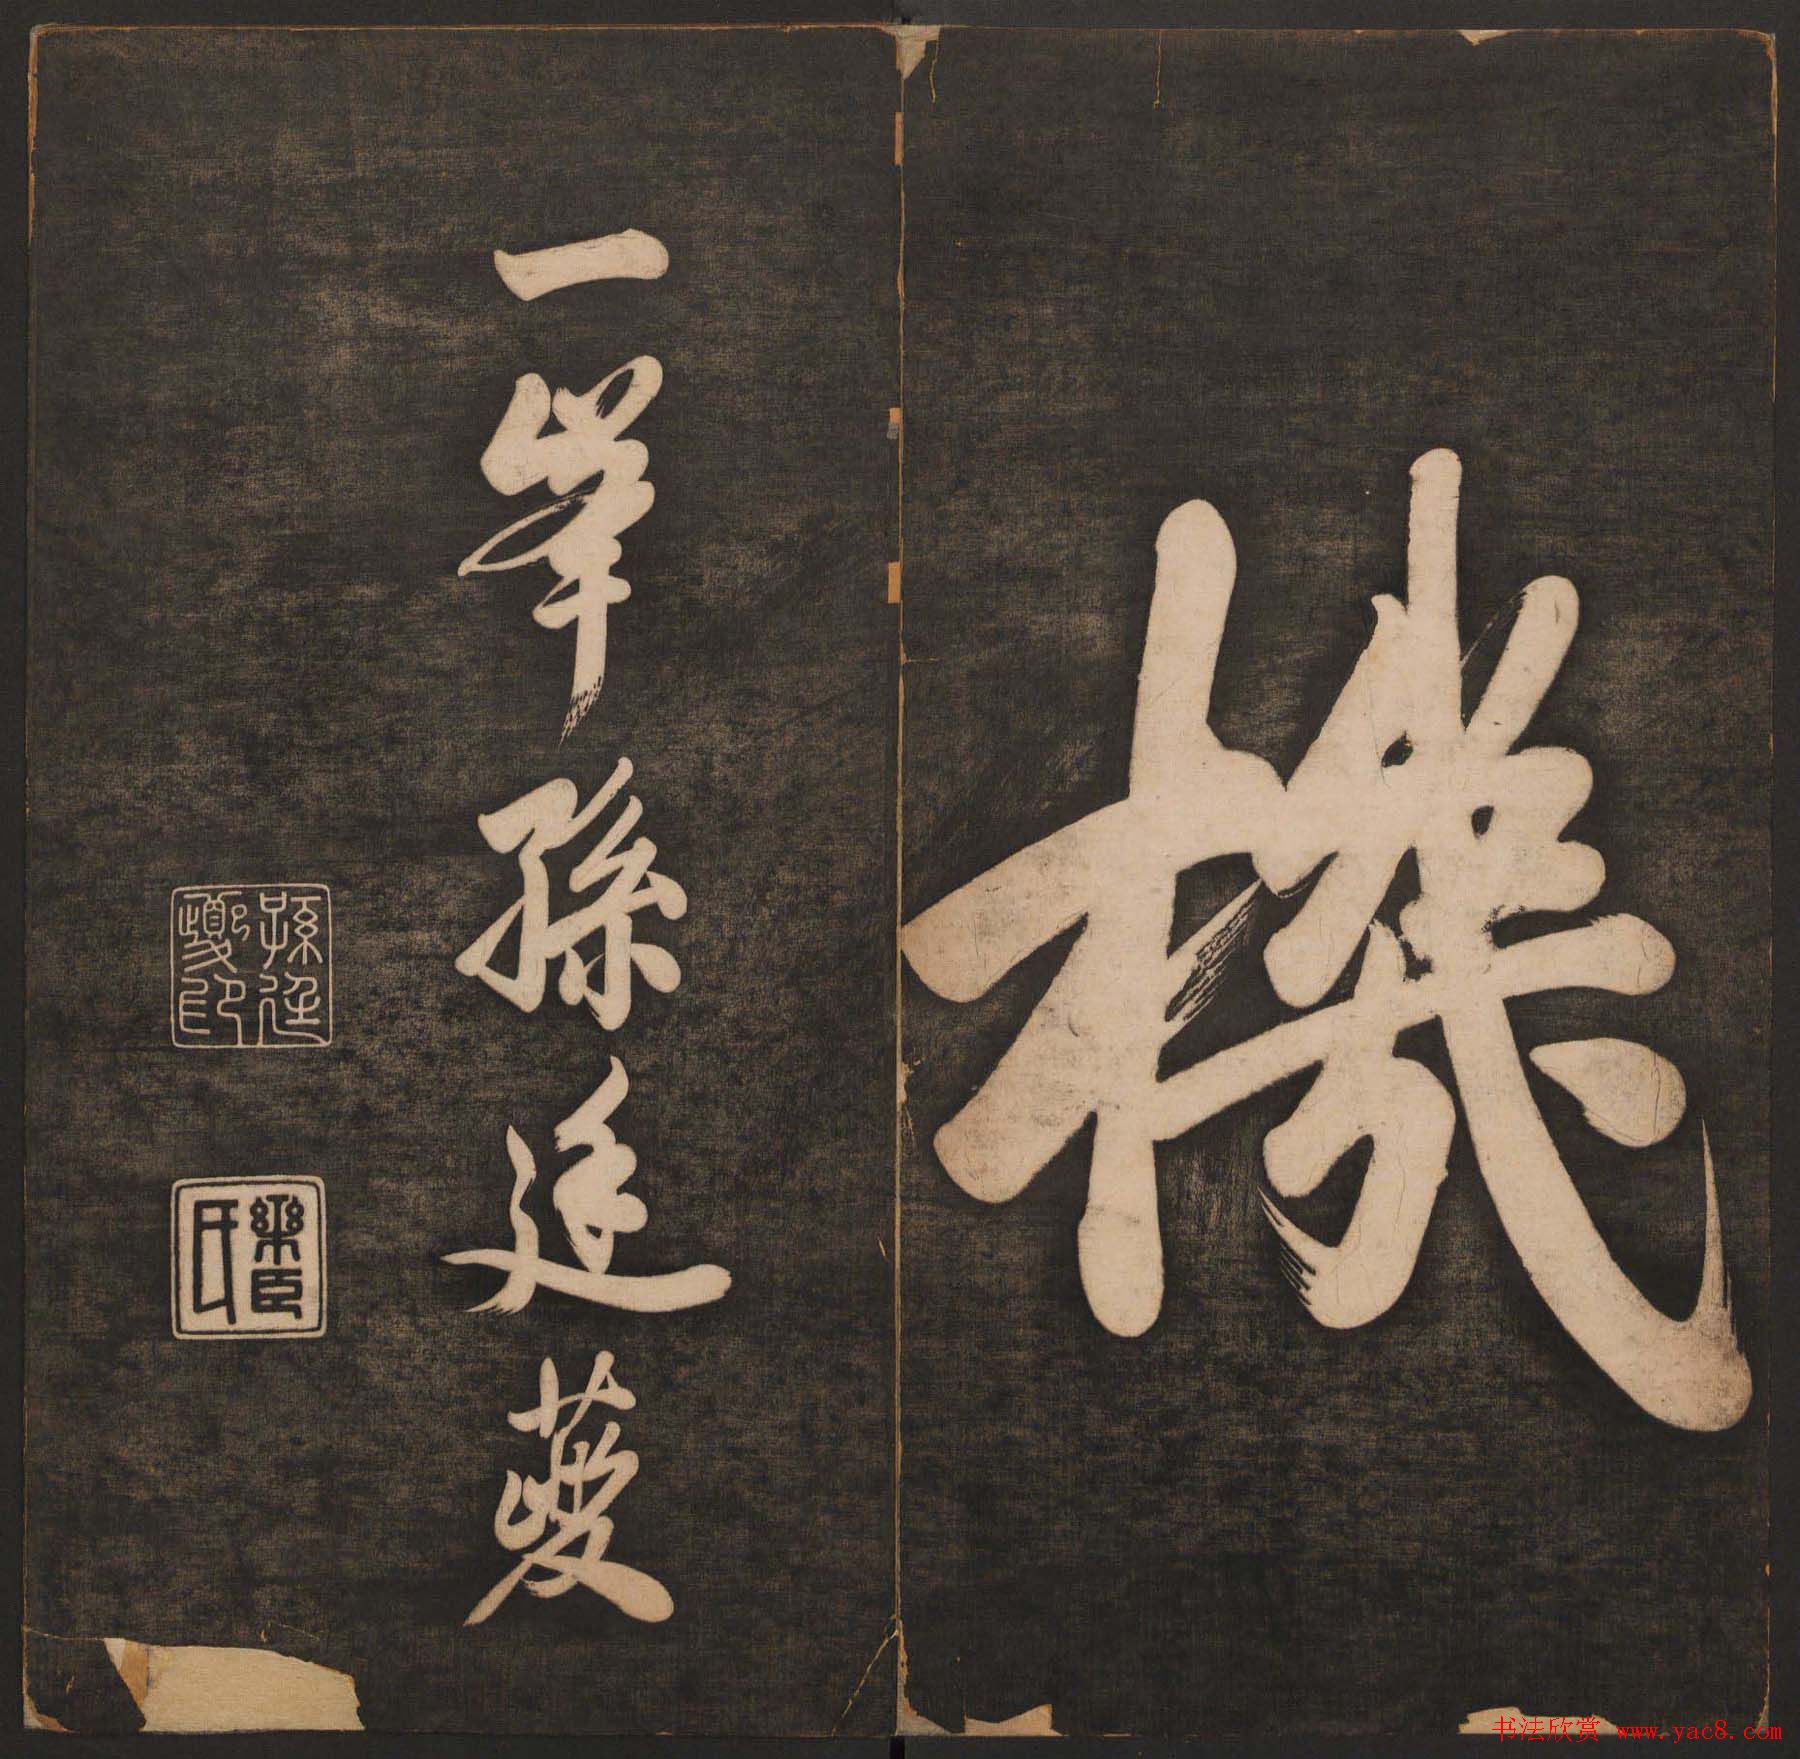 機
一峯孫廷蘷
孫廷夔印
樂臣氏
书法欣赏 www.yac8.com